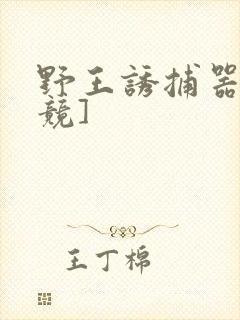 野王誘捕器
競]
王丁棉